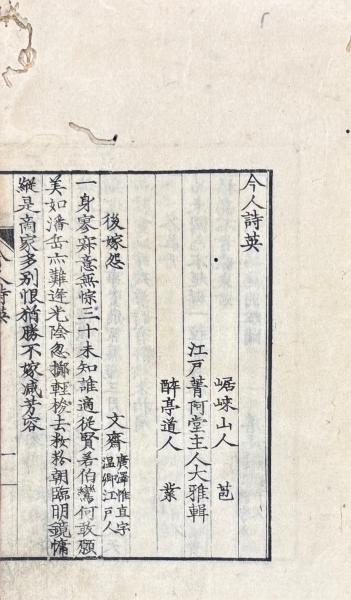 今人詩英
崌崍山人　芭
江戸菁阿堂主人大雅輯
醉亭道人　業
後嫁怨　文齋廣澤惟直字温卿江戸人
一身寥寂意無悰三十未知誰適從賢若伯鸞何敢願
美如潘岳亦難逢光陰忽擲輕梭去妝粉朝臨明鏡慵
縱是商家多別恨猶勝不嫁减芳容
今人詩英　一